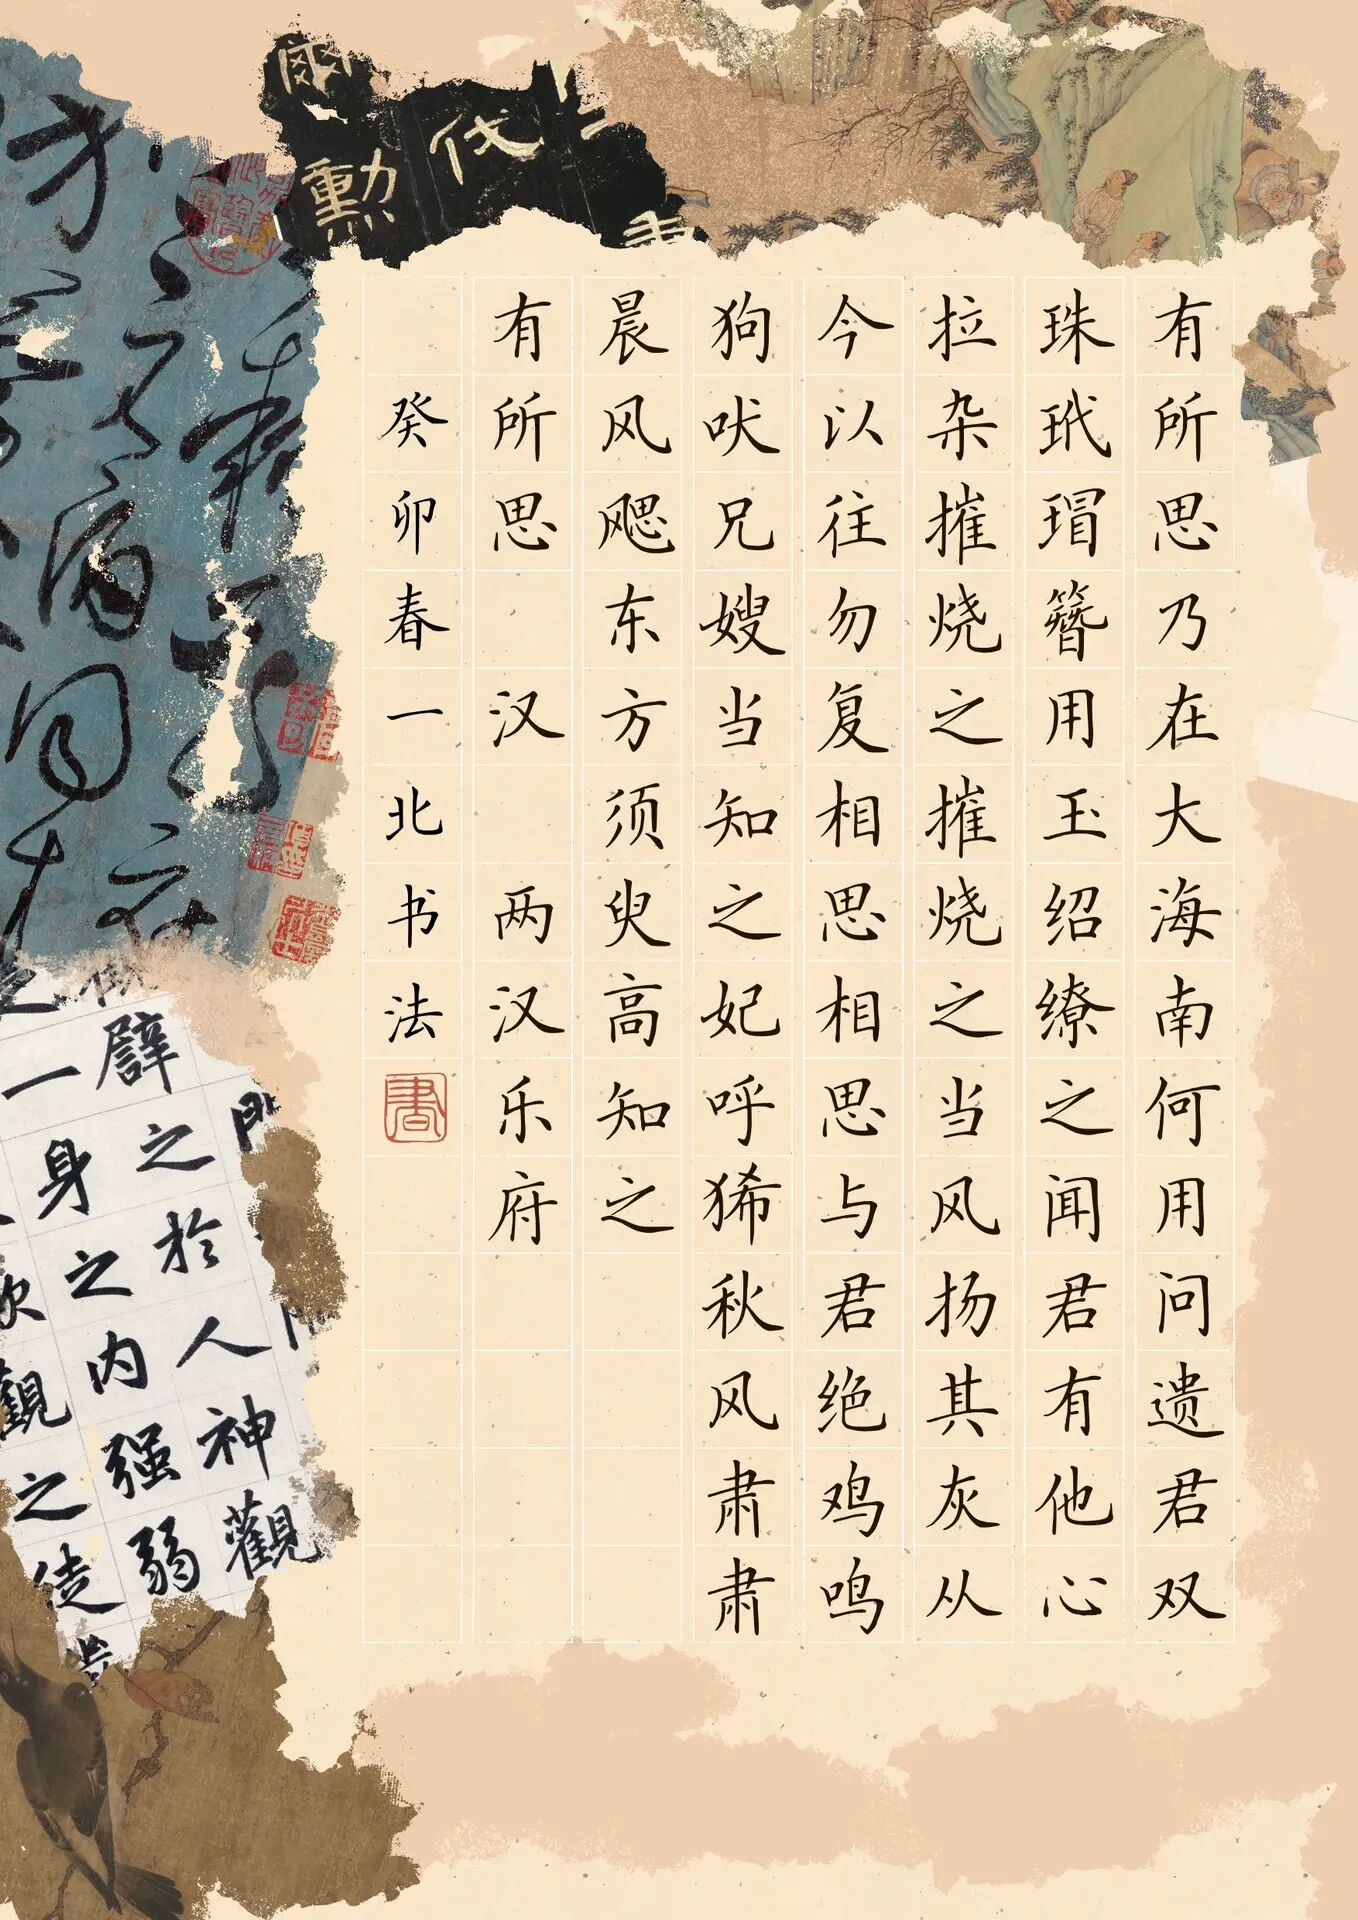 有所思乃在大海南何用问遗君双
珠玳瑁簪用玉绍缭之闻君有他心
拉杂摧烧之摧烧之当风扬其灰从
今以往勿复相思相思与君绝鸡鸣
狗吠兄嫂当知之妃呼狶秋风肃肃
晨风飔东方须臾高知之
有所思 汉 两汉乐府
癸卯春一北书法
書
代
勲
譬之於人神觀
一身之内强弱
觀之徒